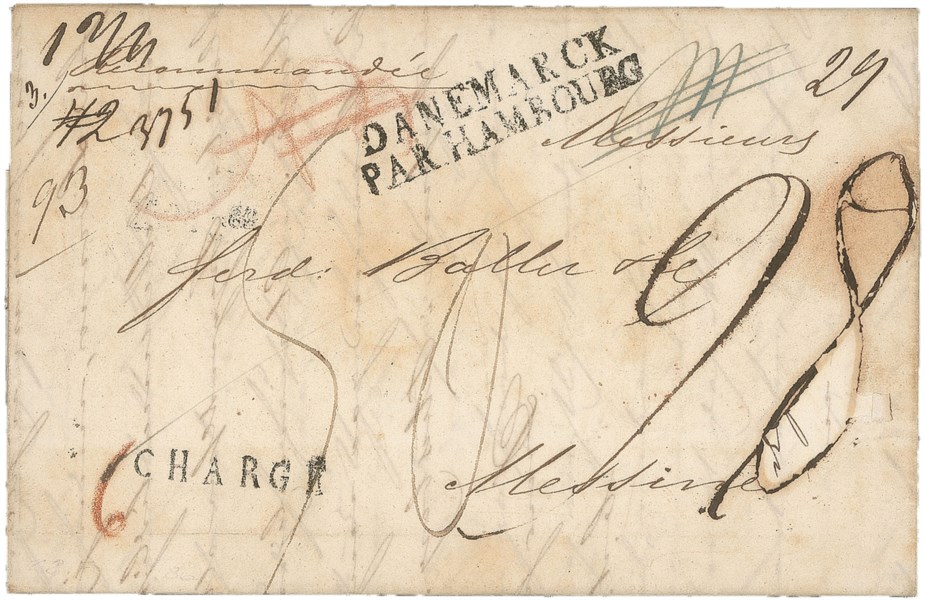 Recommandée
3.
#2 3751
93
DANEMARCK
PAR HAMBOURG
29
Messieurs
ferd: Baller & Ce
98
CHARGÉ
6
Messine